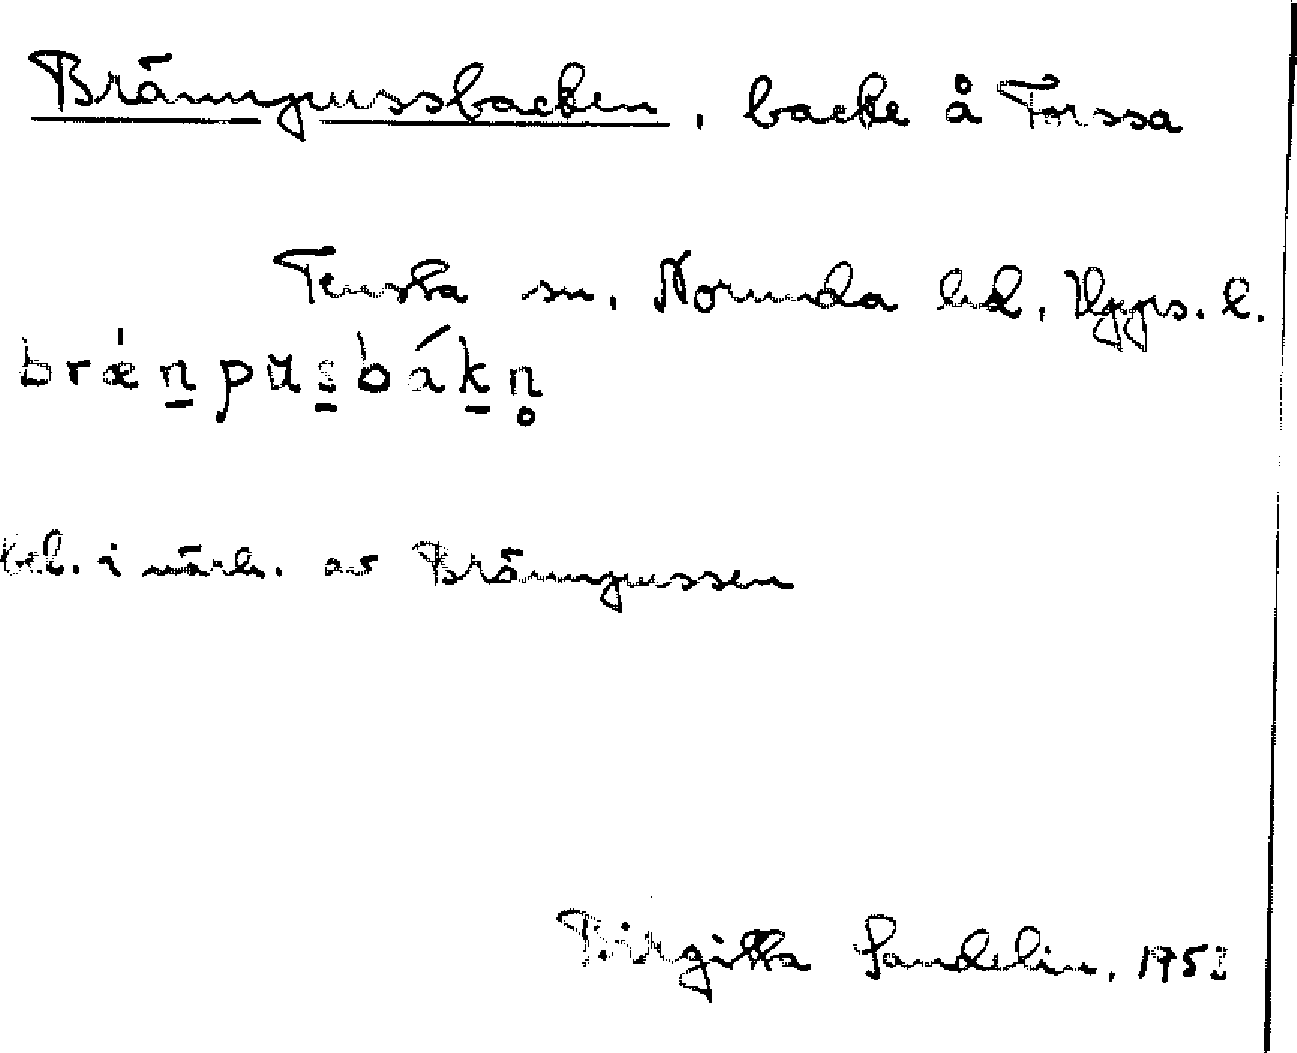 Brännpussbacken, backe å Forssa
Tensta sn. Norunda hd. Upps. l.
brǽn̠pu̇s̠bákn̥
bel. i närh. av Brännpussen
Birgitta Sandelin, 1953